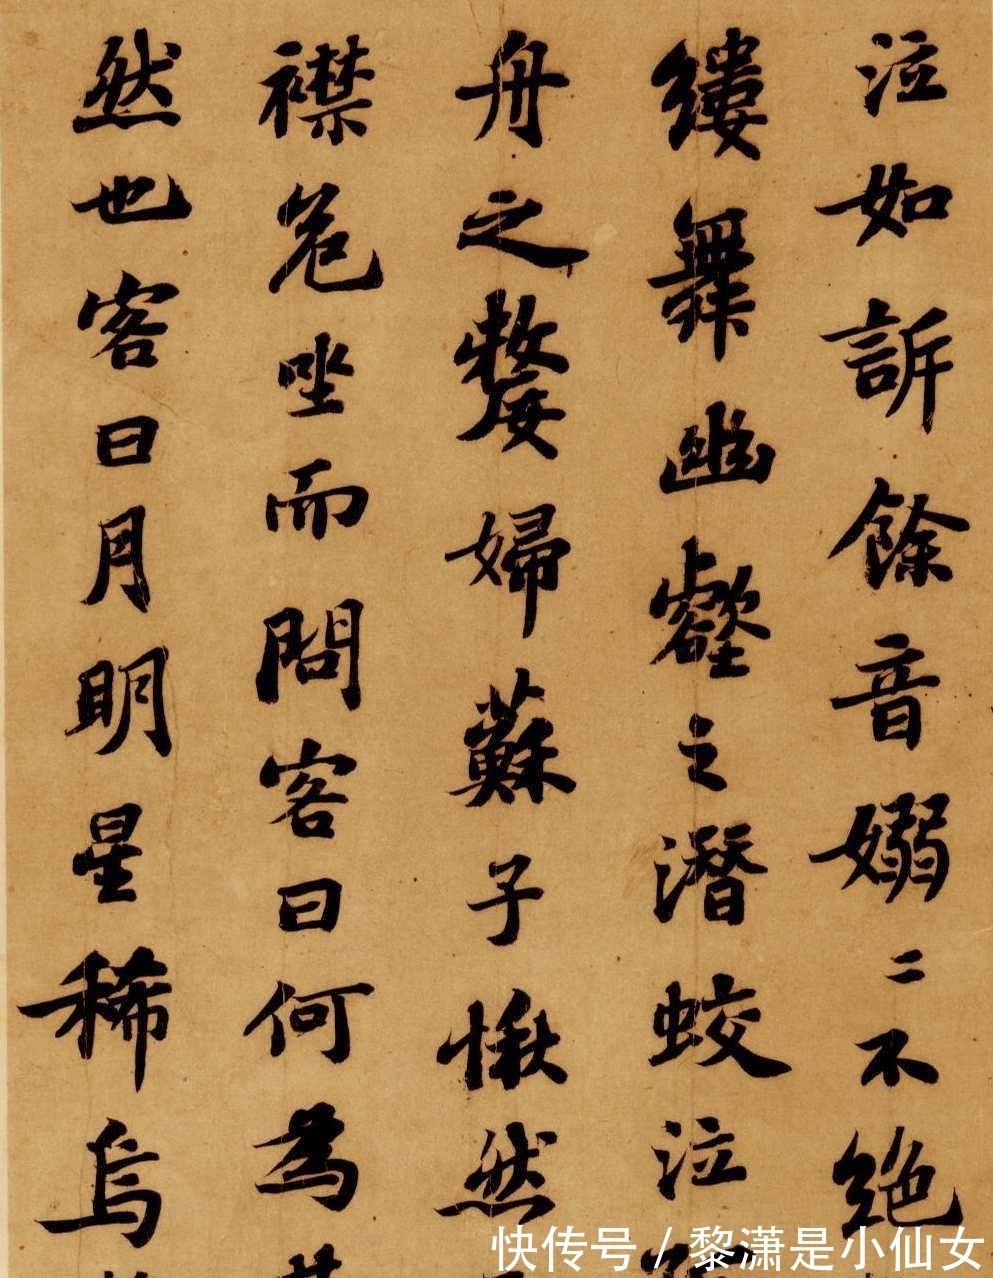 泣如訴餘音嫋〻不绝
縷舞幽壑之潛蛟泣
舟之嫠婦蘇子愀然
襟危坐而問客曰何為
然也客曰月明星稀烏
快传号 / 黎潇是小仙女